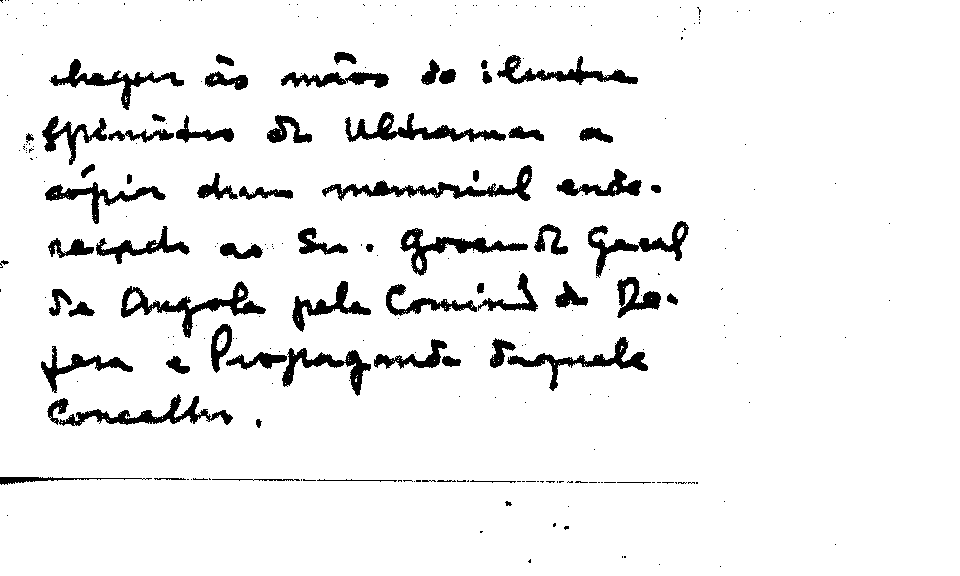 chegar às mãos do ilustre
Ministro do Ultramar a
cópia dum memorial ende-
reçado ao Sr. Governador Geral
de Angola pela Comissão de De-
fesa e Propaganda daquele
Concelho.